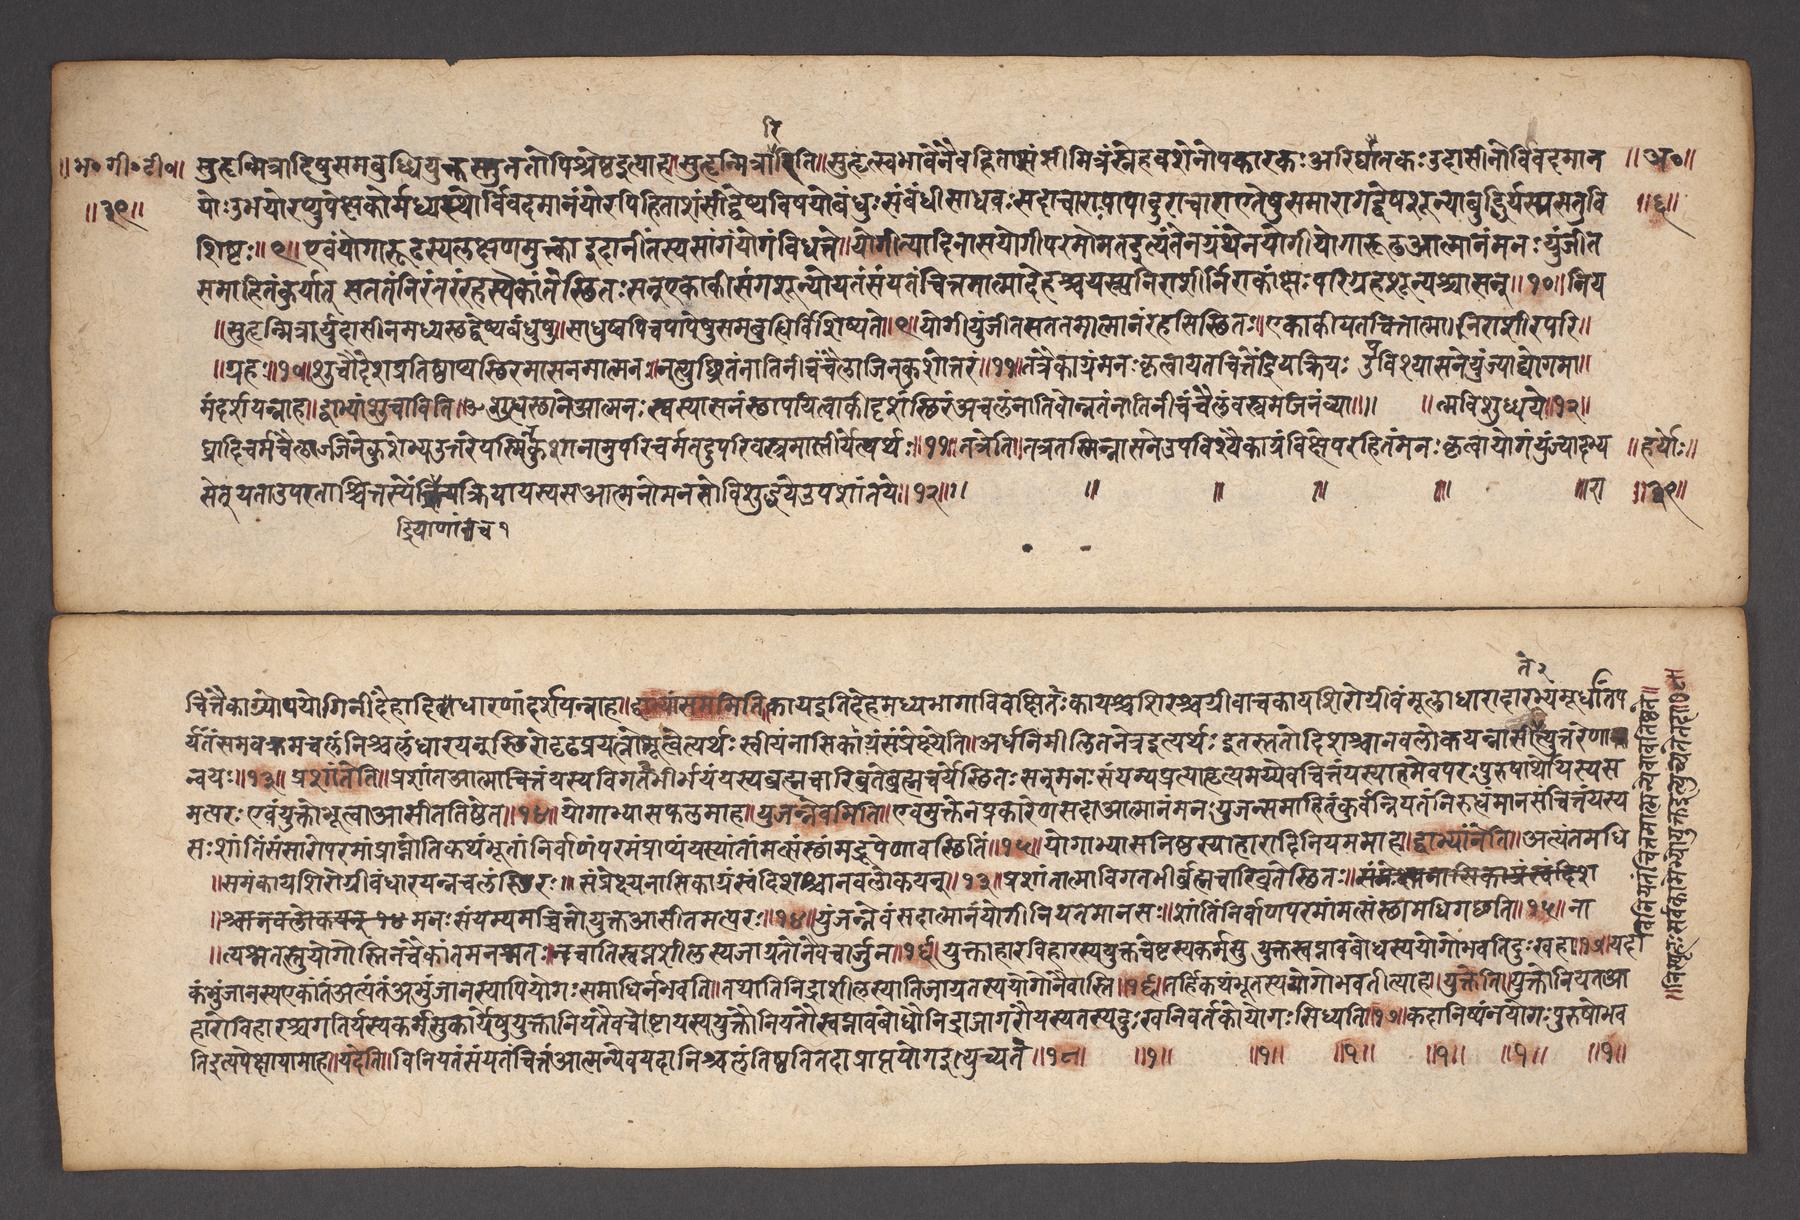 ॥भ॰गी॰टी॰॥
॥३९॥
॥अ॰॥
॥६॥
सुहृन्मित्रादिषुसमबुध्धियुक्तस्तुततोपिश्रेष्ठइत्याह॥सुहृन्मित्रारिति॥सुहृत्स्वभावेनैवहिताशंसीमित्रंस्नेहवशेनोपकारकःअरिर्घातकःउदासीनोविवदमान
योःउभयोरप्युपेक्षकोर्मध्यस्थोर्विवदमानंयोरपिहिताशंसीद्वेष्यविषयोबंधुःसंबंधीसाधवःसदाचाराःपापादुराचाराएतेषुसमारागद्वेषशून्याबुद्धिर्यस्यसतुवि
शिष्टः॥९॥एवंयोगारूढस्यलक्षणमुक्त्वाइदानींतस्यसांगंयोगंविधत्ते॥योगीत्यादिनासयोगीपरमोमतइत्यंतेनग्रंथेनयोगीयोगारूढआत्मानंमनःयुंजीत
समाहितंकुर्यात्सततंनिरंतरंरहस्येकांतेस्थितःसन्एकाकीसंगशून्योयतंसंयतंचित्तमात्मादेहश्चयस्यनिराशीर्निराकांक्षःपरिग्रहशून्यश्चासन्॥१०॥निय
॥सुहृन्मित्रार्युदासीनमध्यस्थद्वेष्यबंधुषु॥साधुष्वपिचपापेषुसमबुद्धिर्विशिष्यते॥९॥योगीयुंजीतसततमात्मानंरहसिस्थितः॥एकाकीयतचित्तात्मा।निराशीरपरि॥
॥ग्रहः॥१०॥शुचौदेशेप्रतिष्ठाप्यस्थिरमासनमात्मनः॥नात्युच्छ्रितंनातिनीचंचैलाजिनकुशोत्तरं॥११॥तत्रैकाग्रंमनःकृत्वायतचित्तेंद्रियक्रियः उपविश्यासनेयुंज्याद्योगमा॥
मंदर्शयन्नाह॥द्वाभ्यांशुचाविति॥शुद्धस्थानेआत्मनःस्वस्यासनंस्थापयित्वाकीदृशंस्थिरंअचलंनातिचोन्नतंनातिनीचंचैलंवस्त्रमजिनंव्या॥॥ ॥त्मविशुध्धये॥१२॥
घ्रादिचर्मचैलाजिनेकुशेभ्यउत्तरेयस्मिन्कुशानामुपरिचर्मतदुपरिवस्त्रमास्तीर्येत्यर्थः॥११॥तत्रेति॥तत्रतस्मिन्नासनेउपविश्यैकाग्रंविक्षेपरहितंमनःकृत्वायोगंयुंज्यादभ्य
सेत्यताउपरताश्चित्तस्येंद्रियक्रियायस्यसआत्मनोमनसोविशुद्धयेउपशांतये॥१२॥ ॥ ॥ ॥ ॥ ॥रा
॥हर्यो॥
॥३९॥
द्रियाणांच १
चित्तैकाग्र्योपयोगिनींदेहादिधारणांदर्शयन्नाह॥द्वाभ्यांसममिति॥कायइतिदेहमध्यभागोविवक्षितःकायश्चशिरश्चग्रीवाचकायशिरोग्रीवंमूलाधारादारभ्यमूर्धातेप
र्यंतंसमवक्रमचलंनिश्चलंधारयन्स्थिरोदृढप्रयत्नोभूत्वेत्यर्थःस्वीयंनासिकाग्रंसंप्रेक्ष्येति॥अर्धनिमीलितनेत्रइत्यर्थःइतस्ततोदिशश्चानवलोकयन्नासीतेत्युत्तरेणा
न्वयः॥१३॥प्रशांतेति॥प्रशांतआत्माचित्तंयस्यविगतभीर्भयंयस्यब्रह्मचारिव्रतेब्रह्मचर्येस्थितःसन्मनःसंयम्यप्रत्याहृत्यमय्येवचित्तंयस्याहमेवपरःपुरुषार्थोयस्यस
मत्परःएवंयुक्तोभूत्वाआसीततिष्ठेत॥१४॥योगाभ्यासफलमाह॥युंजन्नेवमिति॥एवमुक्तेनप्रकारेणसदाआत्मानंमनःयुंजन्समाहितंकुर्वन्नियतंनिरुध्धंमानसंचित्तंयस्य
सःशांतिंसंसारोपरमांप्राप्नोतिकथंभूतांनिर्वाणंपरमंप्राप्यंयस्यांतांमत्संस्थांमद्रूपेणावस्थितिं॥१५॥योगाभ्यासनिष्ठस्याहारादिनियममाह॥द्वाभ्यांनेति॥अत्यंतमधि
॥समंकायशिरोग्रीवंधारयन्नचलंस्थिरः॥ संप्रेक्ष्यनासिकाग्रंस्वंदिशश्चानवलोकयन्॥१३॥प्रशांतात्माविगतभीर्ब्रह्मचारिव्रतेस्थितः॥संप्रेक्ष्यनासिकाग्रंस्वंदिश
॥श्चानवलोकयन्१४मनःसंयम्यमच्चित्तोयुक्तआसीतमत्परः॥१४॥युंजन्नेवंसदात्मानंयोगीनियतमानसः॥शांतिंनिर्वाणपरमांमत्संस्थामधिगछति॥१५॥ना
॥त्यश्नतस्तुयोगोस्तिनचैकांतमनश्नतः॥नचातिस्वप्नशीलस्यजाग्रतोनैवचार्जुन॥१६॥युक्ताहारविहारस्ययुक्तचेष्टस्यकर्मसु युक्तस्वप्नावबोधस्ययोगोभवतिदुःखहा॥१७॥यदा
कंभुंजानस्यएकांतंअत्यंतंअभुंजानस्यापियोगःसमाधिर्नभवति॥तथातिनिद्राशीलस्यातिजाग्रतस्ययोगोनैवास्ति॥१६॥तर्हिकथंभूतस्ययोगोभवतीत्याह॥युक्तेति॥युक्तोनियतआ
हारोविहारश्चगतिर्यस्यकर्मसुकार्येषुयुक्तोनियतैवचेष्टायस्ययुक्तौनियतौस्वप्नावबोधौनिद्राजागरौयस्यतस्यदुःखनिवर्तकोयोगःसिध्यति॥१७॥कदानिष्पंनयोगःपुरुषोभव
तिइत्यपेक्षायामाह॥यदेति॥विनियतंसंयतंचित्तंआत्मन्येवयदानिश्चलंतिष्ठतितदाप्राप्तयोगइत्युच्यते॥१८॥ ॥१॥ ॥१॥ ॥१॥ ॥१॥ ॥१॥ ॥१॥
विनियतंचित्तमात्मन्येवावतिष्ठते॥
॥निस्पृहःसर्वकामेभ्योयुक्तइत्युच्यतेतदा॥१८॥